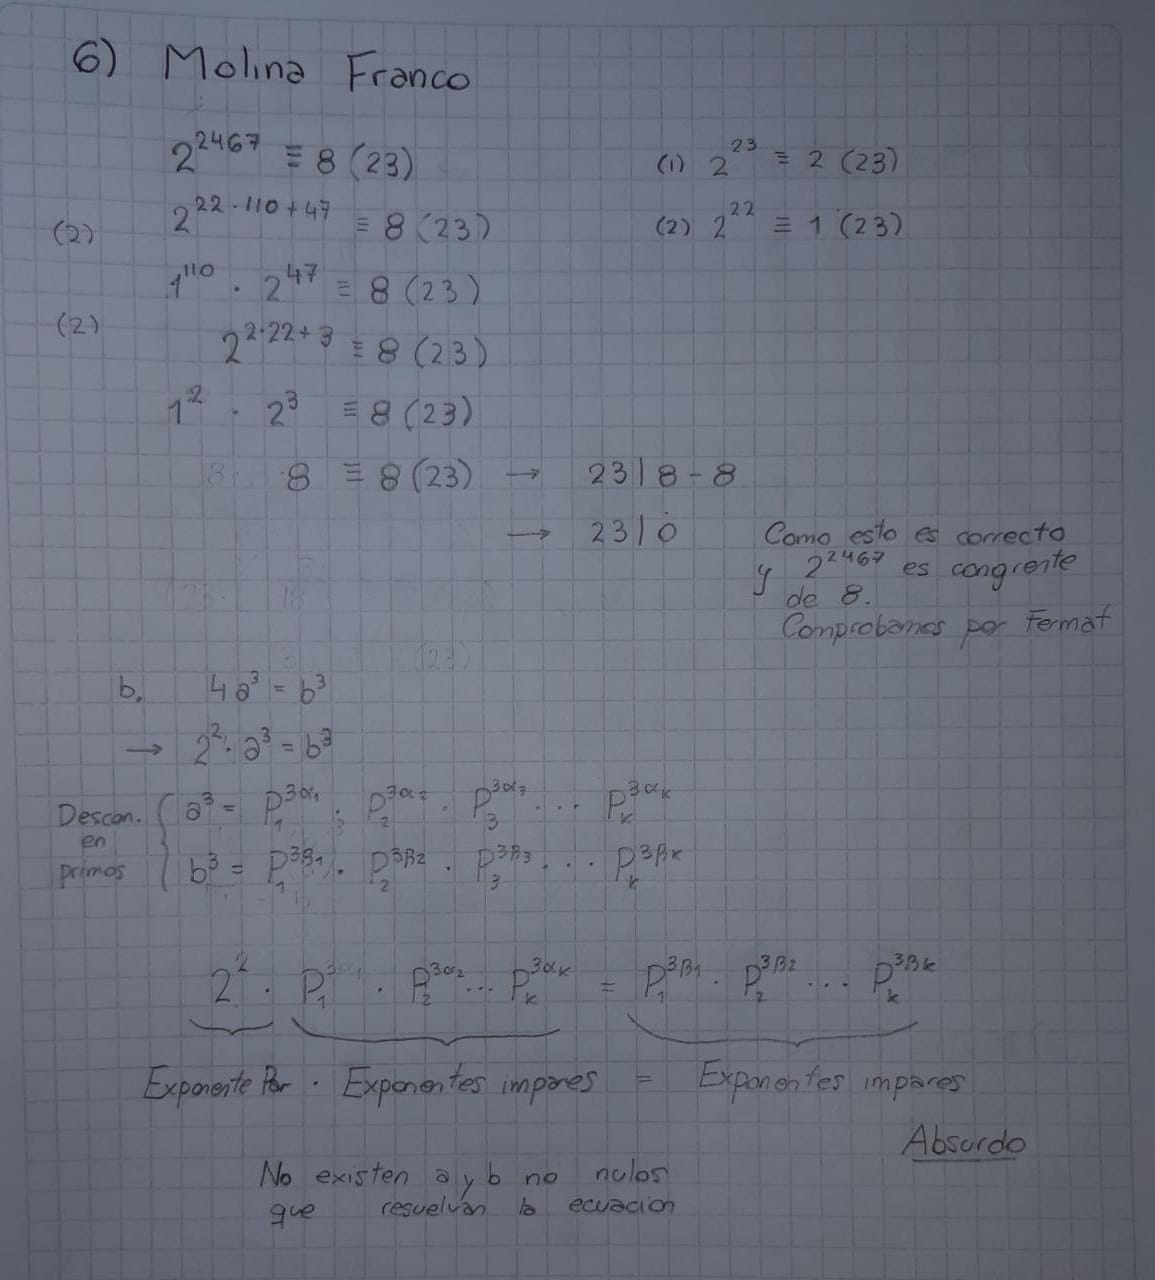 6) Molina Franco
2^2467 ≡ 8 (23)    (1) 2^23 ≡ 2 (23)
(2) 2^(22·110+47) ≡ 8 (23)    (2) 2^22 ≡ 1 (23)
1^110 · 2^47 ≡ 8 (23)
(2) 2^(2·22+3) ≡ 8 (23)
1^2 · 2^3 ≡ 8 (23)
8 ≡ 8 (23) → 23 | 8 - 8
→ 23 | 0 Como esto es correcto
y 2^2467 es congrente
de 8.
Comprobamos por Fermat
b. 4a^3 = b^3
→ 2^2 · a^3 = b^3
Descon. a^3 = P_1^(3α_1) · P_2^(3α_2) · P_3^(3α_3) ... P_k^(3α_k)
en
primos b^3 = P_1^(3β_1) · P_2^(3β_2) · P_3^(3β_3) ... P_k^(3β_k)
2^2 · P_1^(3α_1) · P_2^(3α_2) ... P_k^(3α_k) = P_1^(3β_1) · P_2^(3β_2) ... P_k^(3β_k)
Exponente Par · Exponentes impares = Exponentes impares
Absurdo
No existen a y b no nulos
que resuelvan la ecuacion